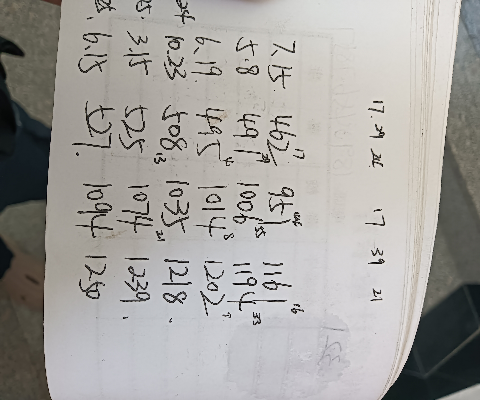 17. 29 21 17 39 21
7.15. 462 17 951 116 16
5.8 491 29 1006 55 1194 33
6.19 495 4 1014 8 1202
10.23 508 13 1035 1218.
3.15 525 1074 1239.
6.15 527. 1094 1250